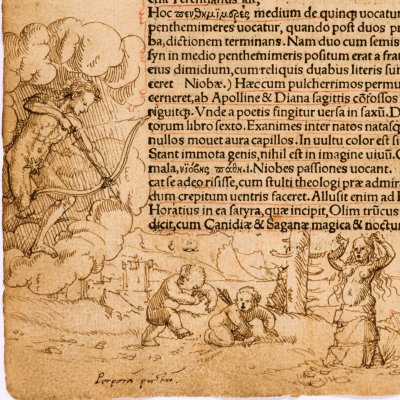 Terentianus ait,
Hoc πενθημιμερὲς medium de quinq uocatur
penthemimeres uocatur, quando post duos p
ba, dictionem terminans. Nam duo cum semis
syn in medio penthemimeris positum erat a frat
eius dimidium, cum reliquis duabus literis sui
ceret Niobæ.) Hæc cum pulcherrimos permu
cerneret, ab Apolline & Diana sagittis cōfossos
riguitq;. Vnde a poetis fingitur uersa in saxū. D
torum libro sexto. Exanimes inter natos natasq
nullos mouet aura capillos. In uultu color est si
Stant immota genis, nihil est in imagine uiuū. C
mala, νιόβης πάθη .i. Niobes passiones uocant.
cat se adeo risisse, cum stulti theologi præ admira
dum crepitum uentris faceret. Allusit enim ad
Horatius in ea satyra, quæ incipit, Olim trūcus
dicit, cum Canidiæ & Saganæ magica & noctur